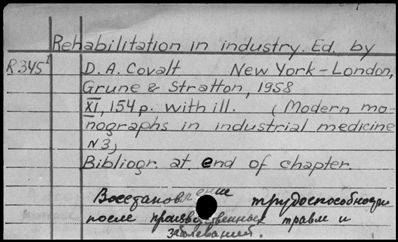 Rehabilitation in industry. Ed. by
R345I D. A. Covalt New York-London,
Grune & Stratton, 1958
XI, 154 p. with ill. (Modern mo-
nographs in industrial medicine
N3)
Bibliogr. at end of chapter.
Восстановление трудоспособности
после производственных травм и
заболеваний.